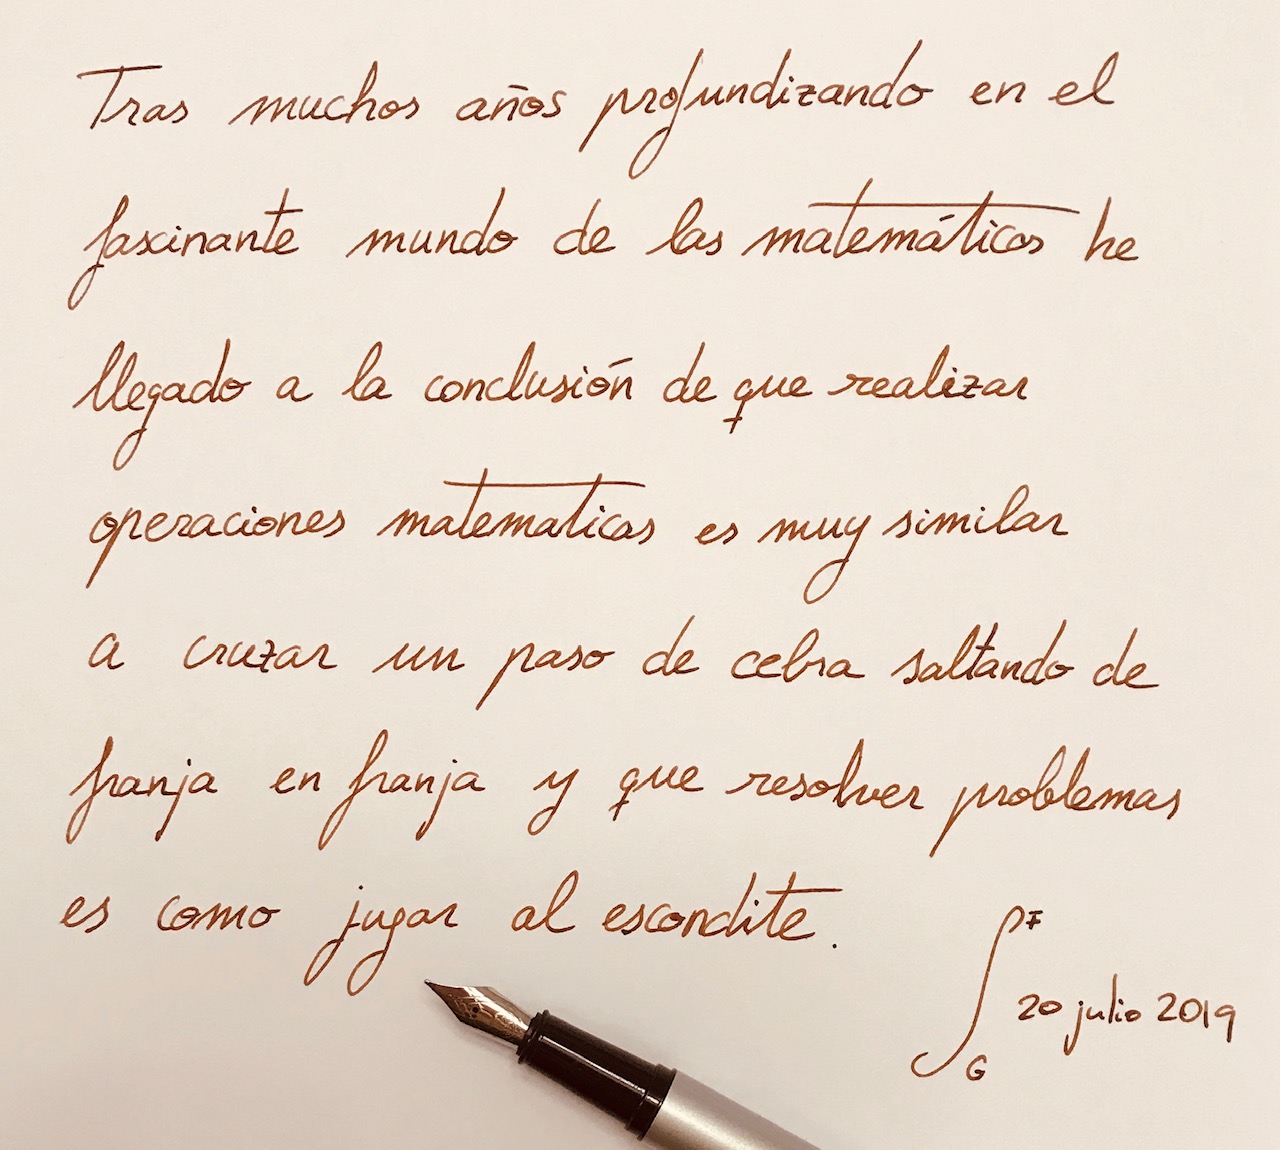 Tras muchos años profundizando en el
fascinante mundo de las matemáticas he
llegado a la conclusión de que realizar
operaciones matematicas es muy similar
a cruzar un paso de cebra saltando de
franja en franja y que resolver problemas
es como jugar al escondite.
∫ F
20 julio 2019
G